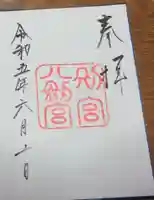 奉拝
別宮
八剣宮
令和五年六月十日